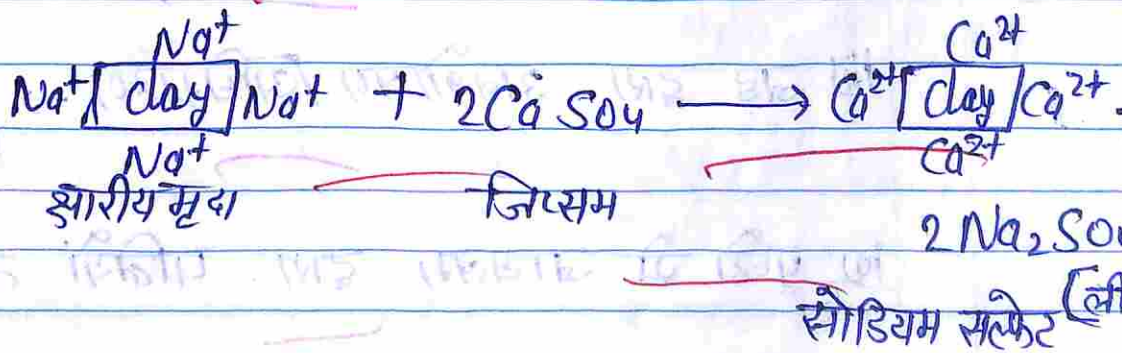 Na⁺ Ca²⁺
Na⁺ [Clay] Na⁺ + 2CaSO₄ ⟶ Ca²⁺ [Clay] Ca²⁺.
Na⁺ Ca²⁺
क्षारीय मृदा जिप्सम
2 Na₂SO₄
सोडियम सल्फेट (ली